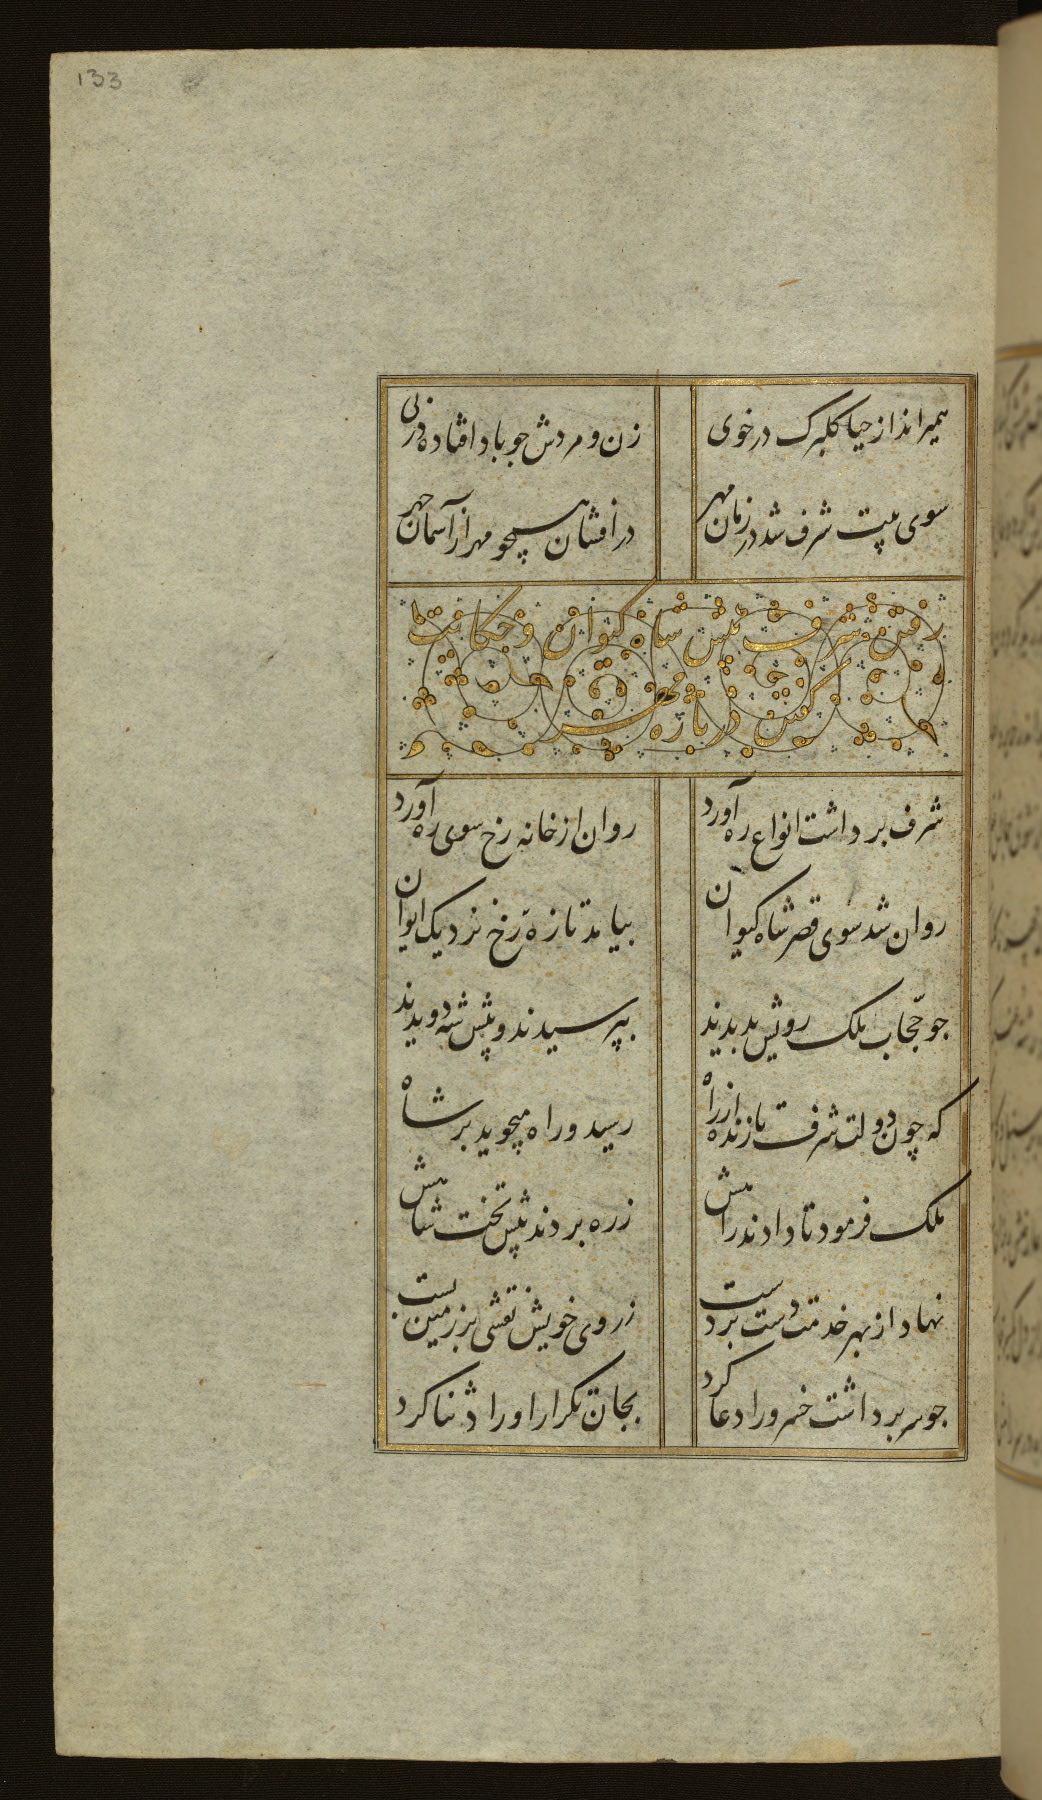 133
همیراند از حیا گلبرک در خوی
زن و مردش جو باد افتاده در پی
سوی بیت شرف شد در زمان مهر
در افشان همچو مهر از آسمان چهر
رفتن شرف پیش شاه کیوان و حکایت
کفتن در باره
شرف برداشت انواع ره آورد
روان از خانه رخ سوی ره آورد
روان شد سوی قصر شاه کیوان
بیامد تازه رخ نزدیک ایوان
جو حجّاب ملک رویش بدیدند
بپرسیدند و پیش شه دویدند
که چون دولت شرف تازنده از راه
رسید و راه میجوید بر شاه
ملک فرمود تا دادند راهش
ز ره بردند پیش تخت شاهش
نهاد از بهر خدمت دست بر دست
ز روی خویش نقشی بر زمین بست
جو سر برداشت خسرو را دعا کرد
بجان تکرار اوراد ثنا کرد